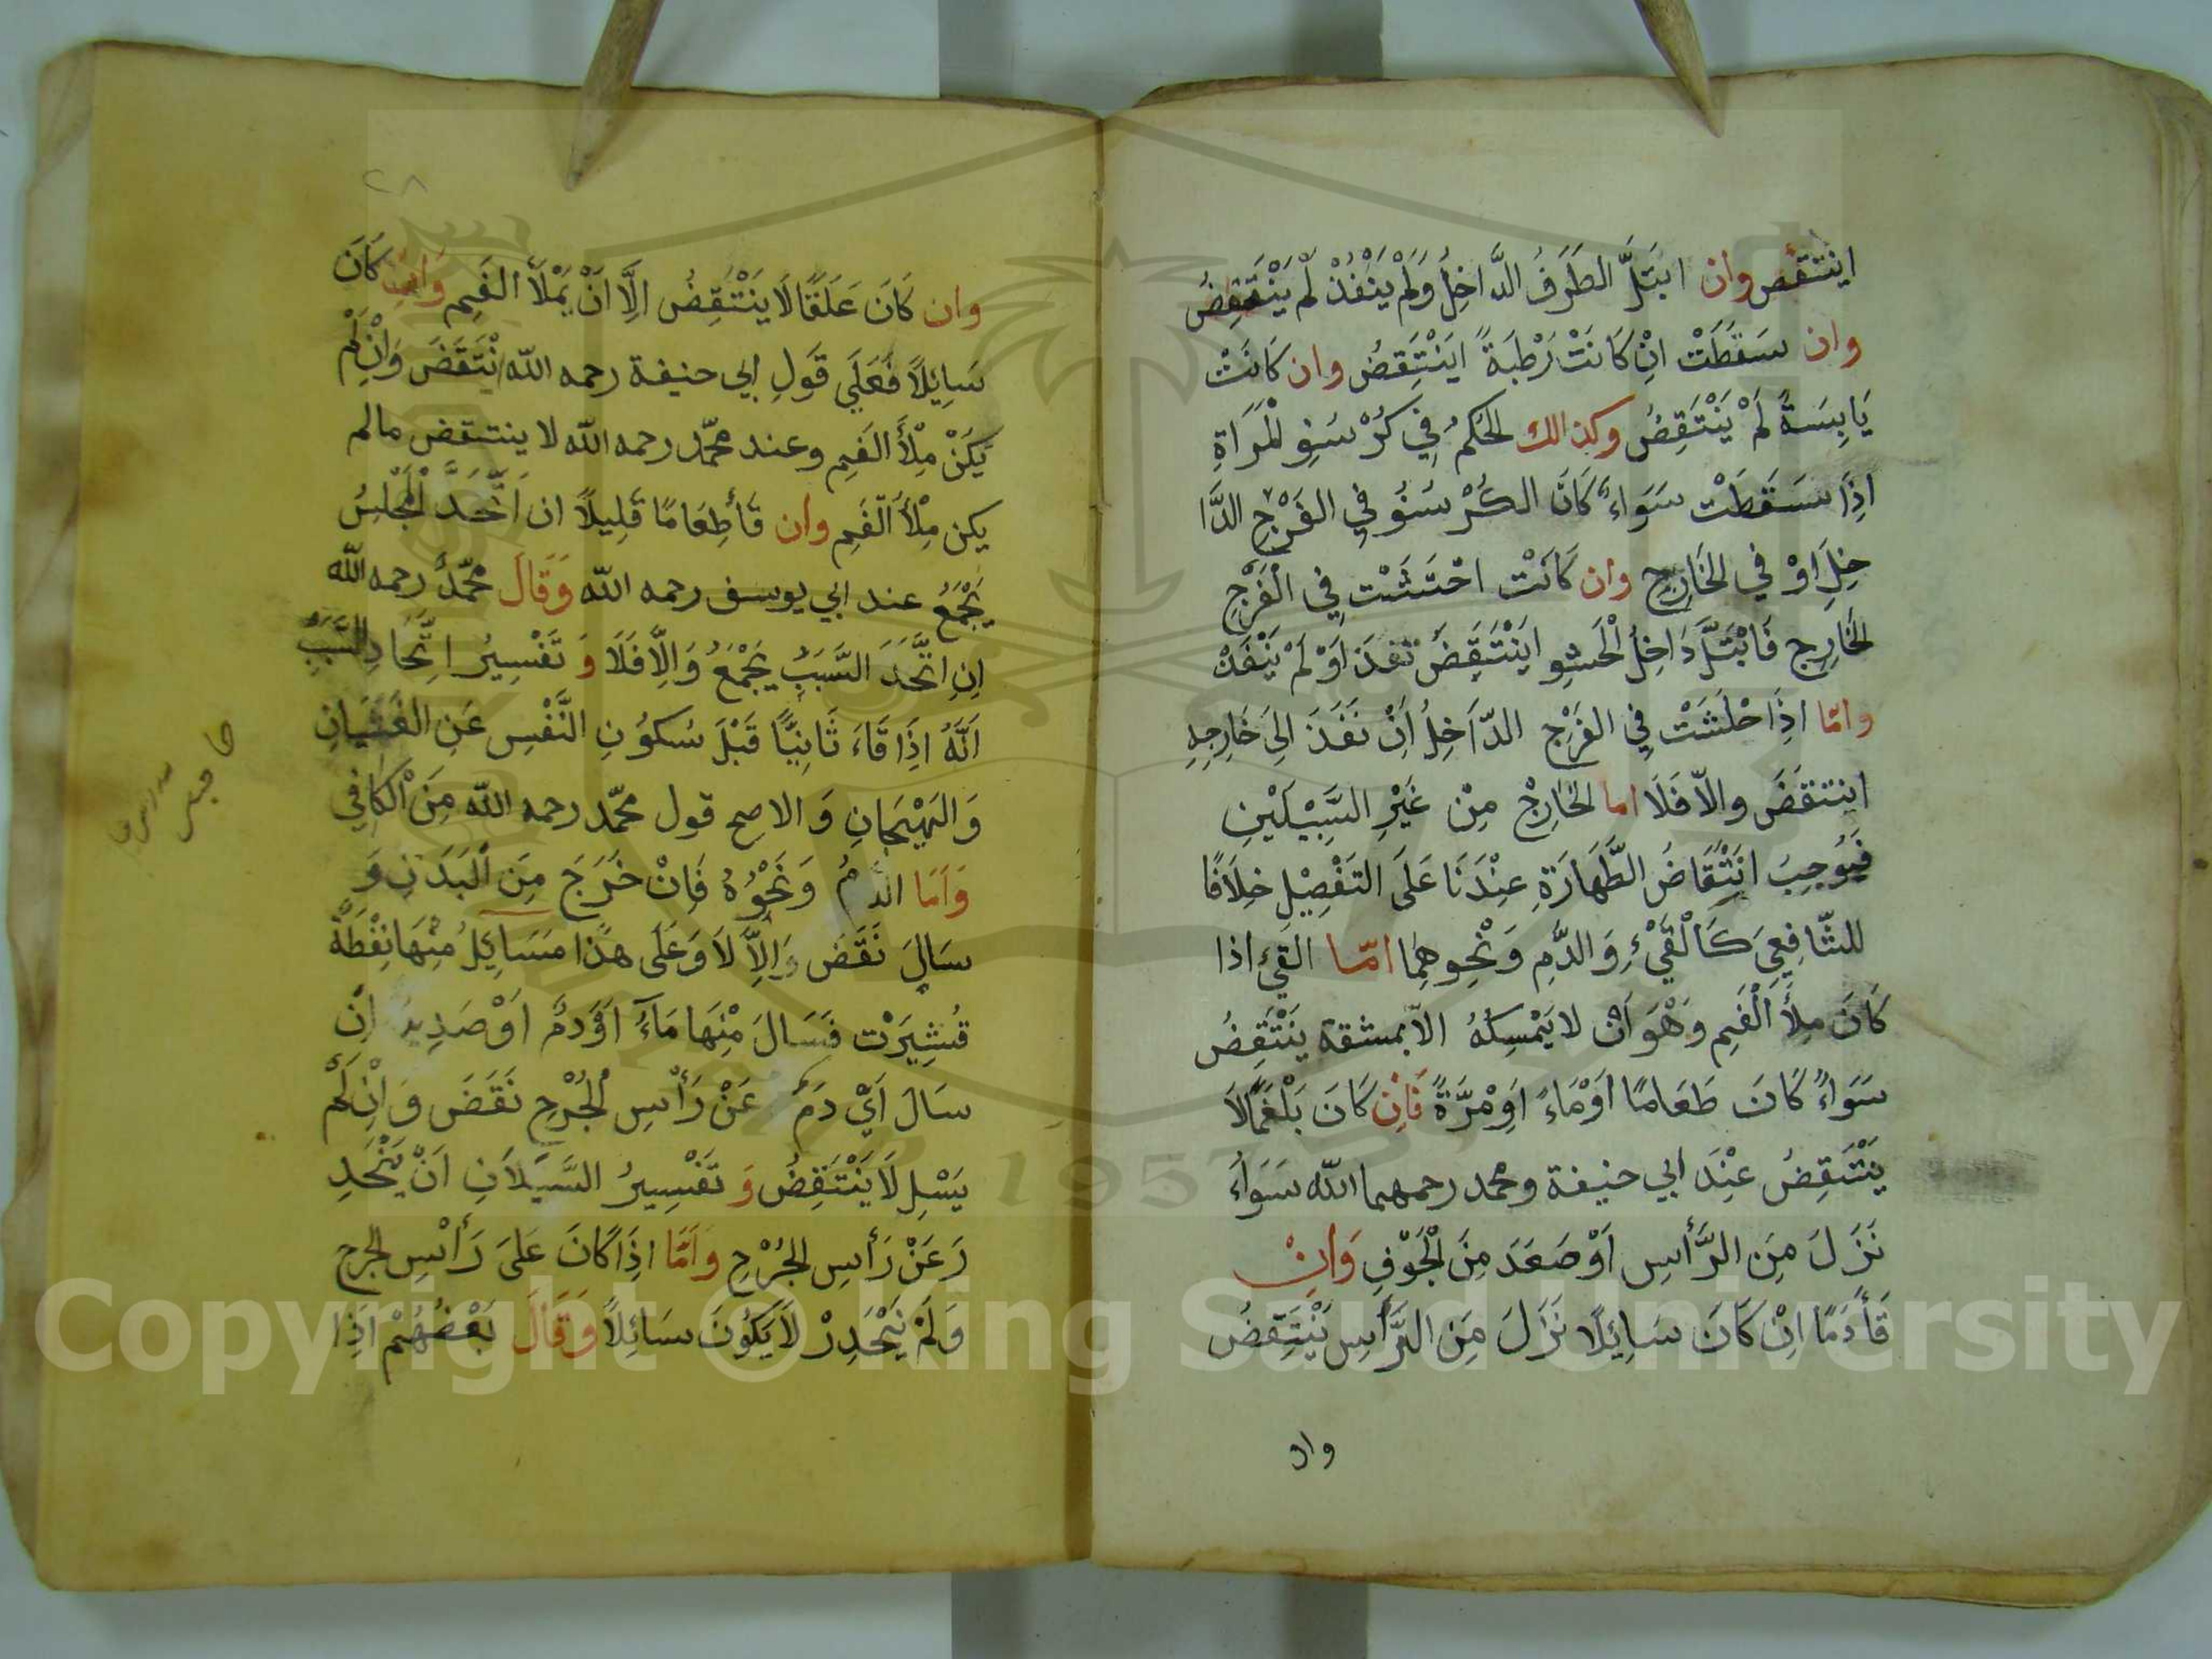 اينتقض وان ابتلّ الطَرَفُ الدَّاخِلُ وَلَمْ يَنْفُذْ لَمْ يَنْتَقِضُ
وان سَقَطَتْ اِنْ كَانَتْ رَطْبَةً ايَنْتَقِضُ وان كَانَتْ
يَابِسَةً لَمْ يَنْتَقِضُ وكذالك الحُكمُ فِي كُرْسُفِ الْمَرَاةِ
اِذَا سَقَطَتْ سَوَاءً كَانَ الكُرْسُفُ فِي الفَرْجِ الدَّا
خِلِ اوْ في الخَارِجِ وان كَانَتْ احْتَشَتْ فِي الْفَرْجِ
الخَارِجِ فَابْتَلَّ دَاخِلُ الْحَشوِ ايَنْتَقِضَ نَفَذَ اَوْ لَمْ يَنْفَذْ
وامّا اذَا حْتَشَتْ فِي الفَرْجِ الدّاخِلِ اِنْ نَفَذَ اِلىَ خَارِجِهِ
اينتقَضَ والّا فَلَا اما الخَارِجْ مِنْ غَيْرِ السَّبِيْلَيْنِ
فَيُوجِبُ انْتِقَاضُ الطَّهَارَةِ عِنْدَنَا عَلَى التَفْصِيْلِ خِلَافًا
للشّافِعِي كَالْقَيْءِ وَالدَّمِ وَنَحْوِهِمَا امّا القَيْءِ اذا
كَانَ مِلأَ الْفَمِ وَهْوَ اَنْ لا يَمْسِكَهُ الاّ بمشقة يَنْتَقِضُ
سَوَاءً كَانَ طَعَامًا اَوْ مَاءً اَوْ مرَّةً فَاِنْ كَانَ بَلْغَمًا لاَ
يَنْتَقِضُ عِنْدَ ابي حنيفة ومحمد رحمهما الله سَوَاءً
نَزَلَ مِنَ الرَّأْسِ اَوْ صَعَدَ مِنَ الْجَوْفِ وَاِنْ
قَأَ دَمًا اِنْ كَانَ سَائِلًا نَزَلَ مِنَ الرَّأْسِ يَنْتَقِضُ
وان
٢٨
وان كَانَ عَلَقًا لاَ يَنْتَقِضُ اِلَّا اَنْ يَمْلَأَ الفَمِ وَاِن كَانَ
سَايِلًا فَعَلَي قَولِ ابي حنيفة رحمه الله اِنْتَقَضَ وَاِنْ لَمْ
يَكَنْ مِلْأَ الفَمِ وعند محمّد رحمه الله لا ينتقض مالم
يكن مِلْأَ الفَمِ وان قَأَ طِعَامًا قَلِيلًا ان اتَّحَدَ الْمَجْلِسُ
يَجْمَعُ عند ابي يوسف رحمه الله وَقَالَ محمّدٌ رحمه الله
اِنِ اتَّحَدَ السَّبَبُ يَجْمَعُ وَاِلاَّ فَلَا وَ تَفْسِيْرُ اِتِّحَادِ السَّبَبِ
اَنَّهُ اِذَا قَاءَ ثَانِيًّا قَبْلَ سُكُوْنِ النَّفْسِ عَنِ الغَثَيَانِ
وَالهَيْجَانِ وَ الاصح قول محمّد رحمه الله مِنَ الْكَافِي
وَاَمَا الدَّمُ وَنَحْوُهُ فَاِنْ خَرَجَ مِنَ الْبَدَنِ وَ
سَالَ نَقَضَ وَاِلاَّ لاَ وَعَلَى هذا مَسَايِلُ مِنْهَا نِفْطَةٌ
قُشِيَرَتْ فَسَالَ مِنْهَا مَاءٌ اَوْ دمٌ اَوْ صَدِيدٌ اِنْ
سَالَ اَيْ دَمُ عَنْ رَأْسِ الْجُرْحِ نَقَضَ وَاِنْ لَمْ
يَسْلِ لَا يَنْتَقِضُ وَ تَفْسِيرُ السَّيَلَانِ اَنْ يَنْحَدِ
رَ عَنْ رَأْسِ الجُرْحِ وَاَمّا اذَا كَانَ عَلىَ رَأْسِ الجرح
وَ لَمْ يَنْحَدِرْ لاَ يَكُوْنَ سَائِلاً وَقَالَ بَعْضُهُمْ اِذَا
Copyright © King Saud University
1957